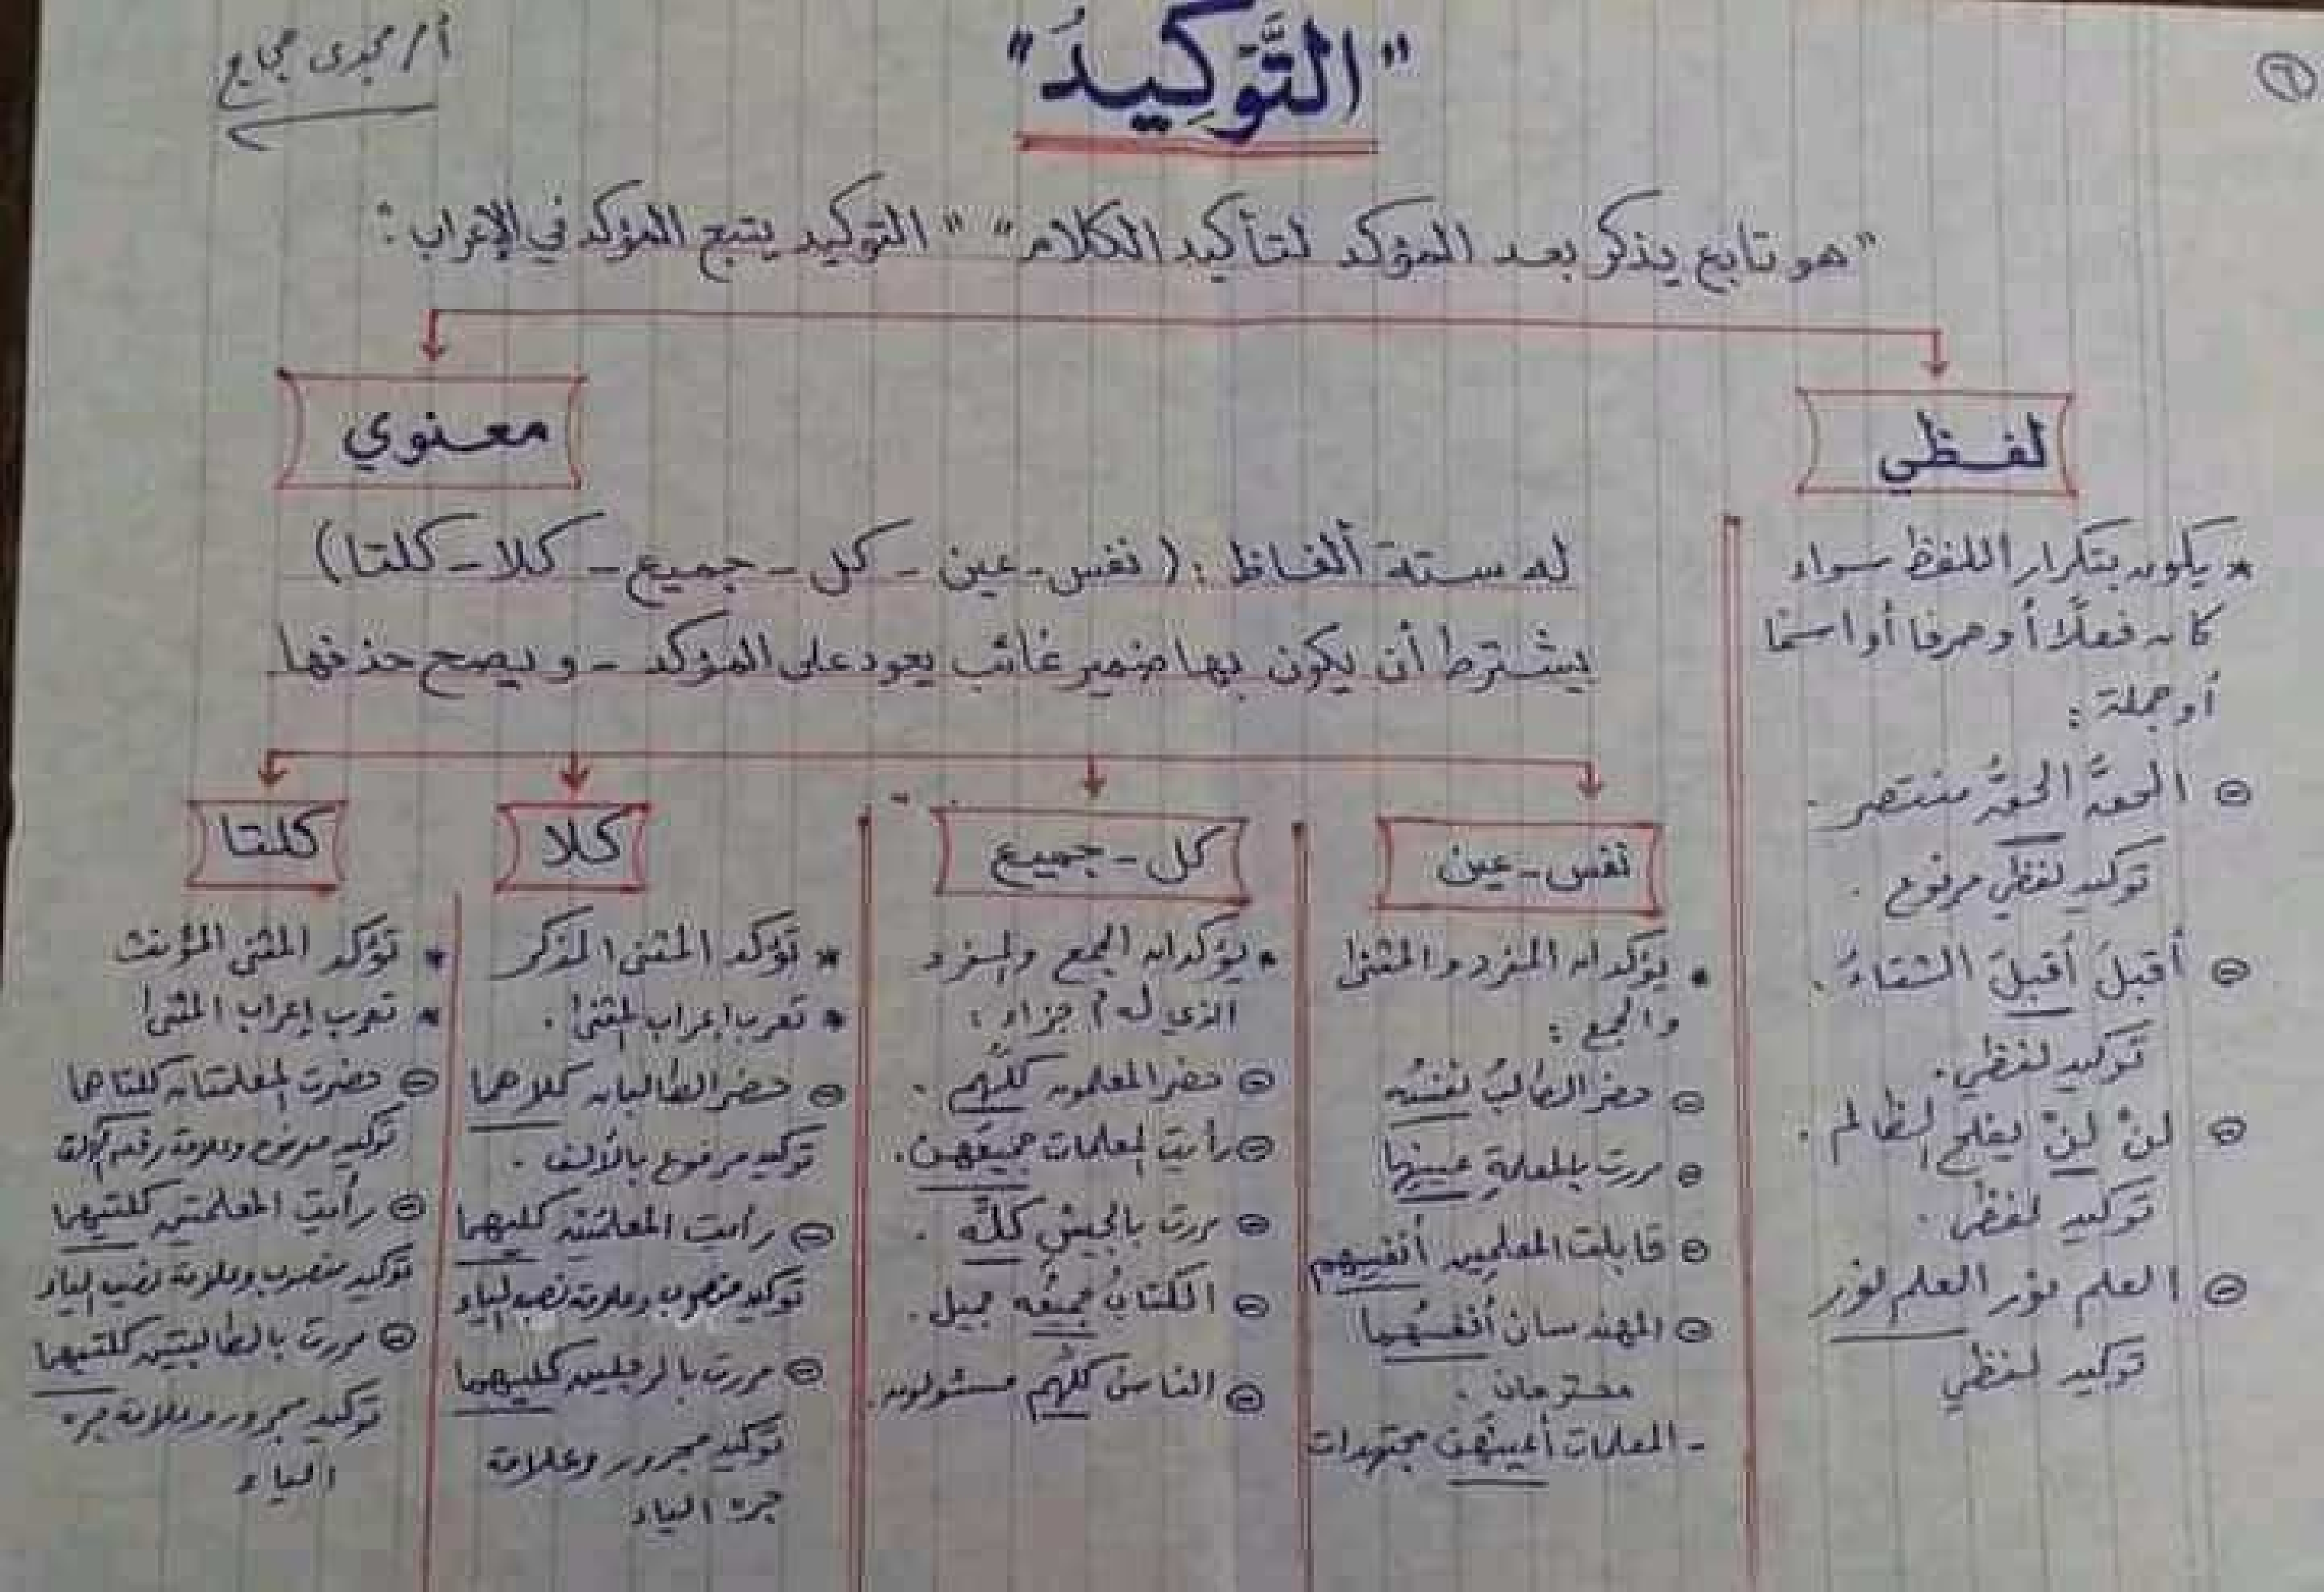 ٦
"التَّوْكِيدُ"
أ/ مجدى
"هو تابع يذكر بعد المؤكد لتأكيد الكلام" "التوكيد يتبع المؤكد في الإعراب:
لفظي
* يكون بتكرار اللفظ سواء
كان فعلًا أو حرفا أو اسمًا
أو جملة :
⊖ الحقُّ الحقُّ منتصر .
توكيد لفظي مرفوع .
⊖ أقبلَ أقبلَ الشتاءُ .
توكيد لفظي .
⊖ لنْ لنْ يفلح الظالم .
توكيد لفظى .
⊖ العلم نور العلم نور
توكيد لفظي
معنوي
له ستة ألفاظ : ( نفس - عين - كل - جميع - كلا - كلتا )
يشترط أن يكون بها ضمير غائب يعود على المؤكد - ويصح حذفها
نفس - عين
• يؤكدان المفرد والمثنى
والجمع :
⊖ حضر الطالبُ نفسُه
⊖ مررت بالمعلمةِ عينِها
⊖ قابلت المعلمين أنفسهم
⊖ المهندسان أنفسُهما
محترمان .
- المعلمات أعينُهن مجتهدات
كل - جميع
* يؤكدان الجمع والمفرد
الذي له أجزاء :
⊖ حضر المعلمون كلُّهم .
⊖ رأيت المعلمات جميعَهن .
⊖ مررت بالجيشِ كلِّه .
⊖ الكتابُ جميعُه جميل .
⊖ الناسُ كلُّهم مسئولون .
كلا
* تؤكد المثنى المذكر
* تعرب إعراب المثنى .
⊖ حضر الطالبان كلاهما
توكيد مرفوع بالألف .
⊖ رأيت المعلمَيْن كليهما
توكيد منصوب وعلامة نصبه الياء
⊖ مررت بالرجلين كليهما
توكيد مجرور وعلامة
جره الياء
كلتا
* تؤكد المثنى المؤنث
* تعرب إعراب المثنى
⊖ حضرت المعلمتان كلتاهما
توكيد مرفوع وعلامة رفعه الألف
⊖ رأيت المعلمتين كلتيهما
توكيد منصوب وعلامة نصبه الياء
⊖ مررت بالطالبتين كلتيهما
توكيد مجرور وعلامة جره
الياء